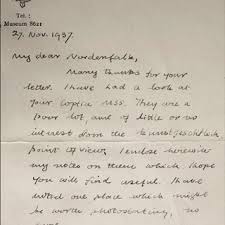 Tel:
Museum 8621
27. Nov. 1937.
My dear Nordenfalk,
Many thanks for your
letter. I have had a look at
your Coptic MSS. They are a
poor lot, and of little or no
interest from the
point of view. I enclose herewith
my notes on them which I hope
you will find useful. I have
noted one place which might
be worth photostating, no